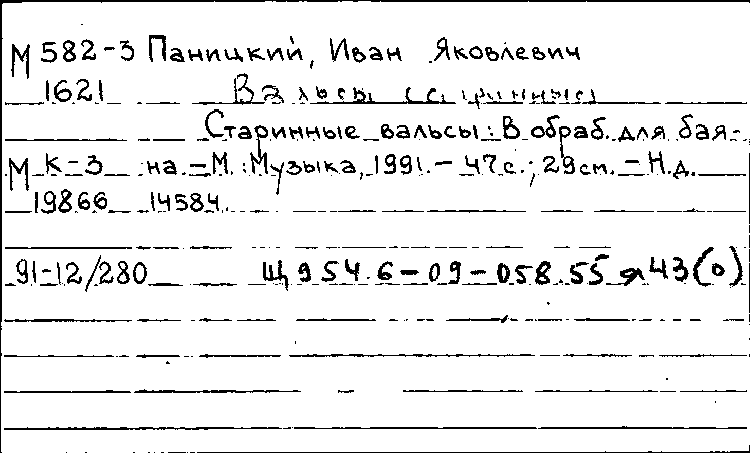 М 582-3 Паницкий, Иван Яковлевич
1621 Вальсы (старинные)
Старинные вальсы: В обраб. для бая-
М К-3 на. - М.: Музыка, 1991. - 47 с.; 29 см. - Н.д.
19866 14584
91-12/280 Щ 954.6-09-058.55 я 43(0)